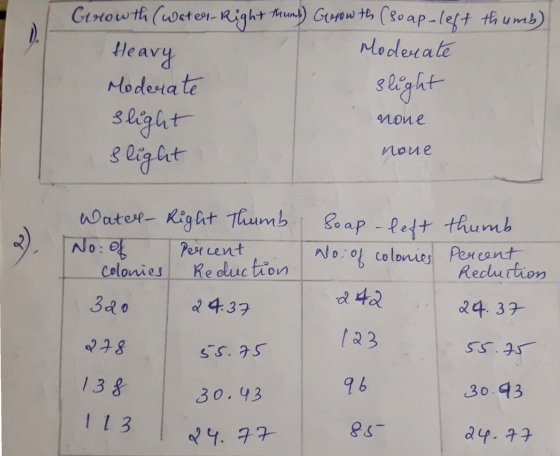 1). Growth (Water-Right thumb) Growth (Soap-left thumb)
Heavy Moderate
Moderate Slight
Slight none
Slight none
2). Water- Right Thumb Soap-left thumb
No: of colonies Percent Reduction No: of colonies Percent Reduction
320 24.37 242 24.37
278 55.75 123 55.75
138 30.43 96 30.43
113 24.77 85 24.77